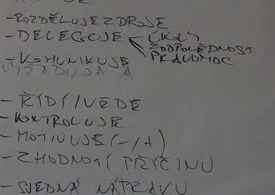 - ROZDĚLUJE ZDROJE
- DELEGUJE
ÚKOLY
ZODPOVĚDNOST
PRAVOMOC
- KOMUNIKUJE
VYŽADUJE A
- ŘÍDÍ / VEDE
- KONTROLUJE
- MOTIVUJE (-/+)
- ZHODNOTÍ PŘÍČINU
- SJEDNÁ NÁPRAVU